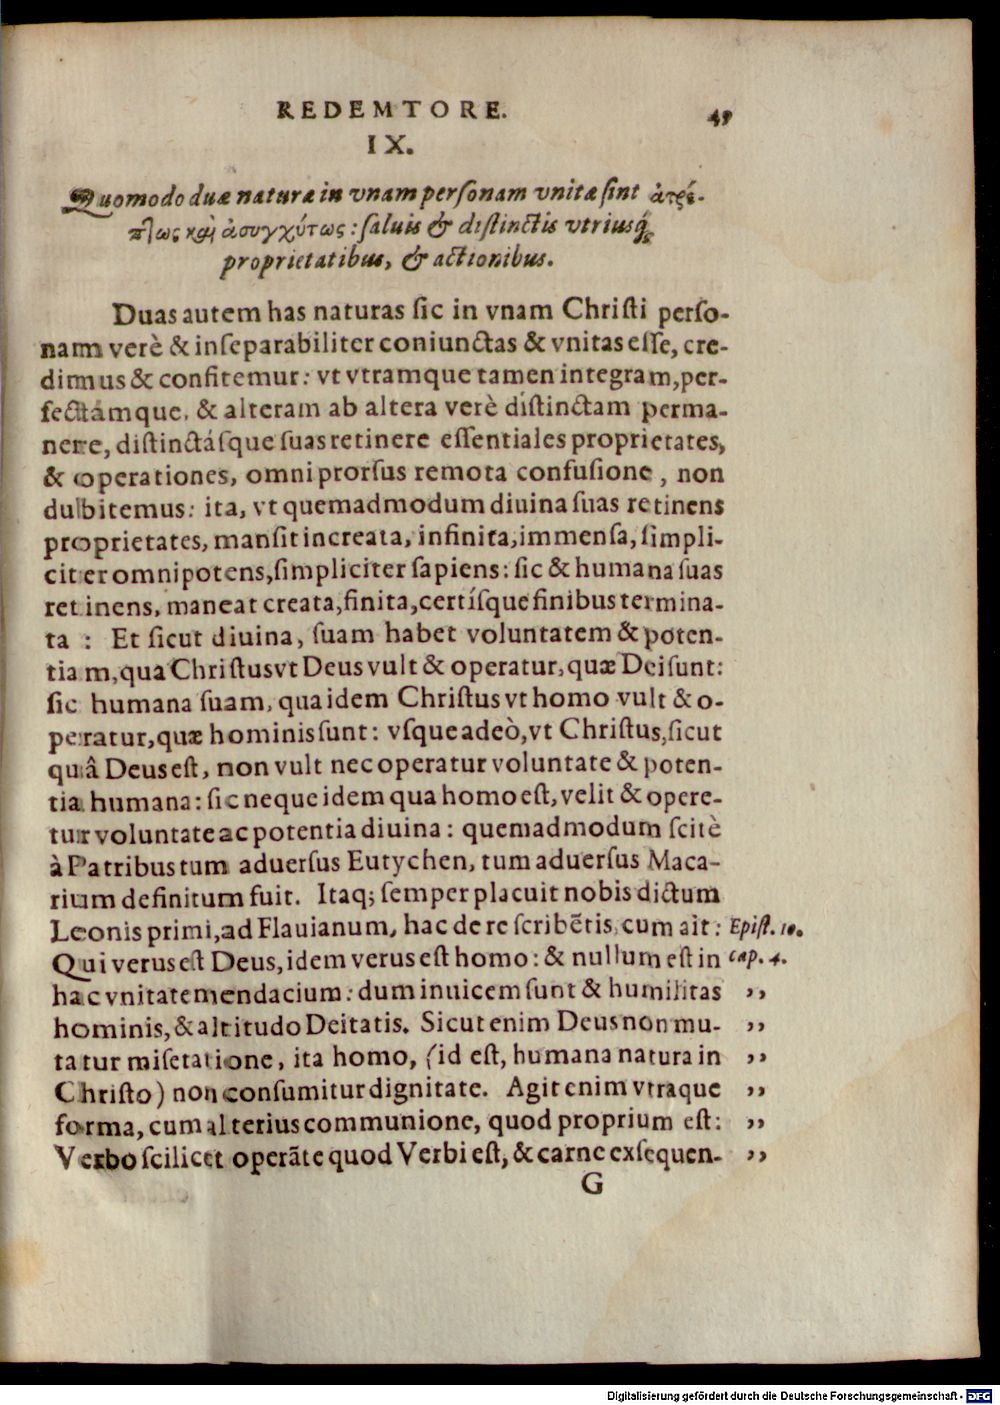 REDEMTORE. 49
IX.
Quomodo duæ naturæ in vnam personam vnitæ sint ἀτρέ-
πτως καὶ ἀσυγχύτως: saluis & distinctis vtriusq́;
proprietatibus, & actionibus.
Duas autem has naturas sic in vnam Christi perso-
nam verè & inseparabiliter coniunctas & vnitas esse, cre-
dimus & confitemur: vt vtramque tamen integram, per-
fectámque, & alteram ab altera verè distinctam perma-
nere, distinctásque suas retinere essentiales proprietates,
& operationes, omni prorsus remota confusione, non
dubitemus: ita, vt quemadmodum diuina suas retinens
proprietates, mansit increata, infinita, immensa, simpli-
citer omnipotens, simpliciter sapiens: sic & humana suas
retinens, maneat creata, finita, certísque finibus termina-
ta: Et sicut diuina, suam habet voluntatem & poten-
tiam, qua Christus vt Deus vult & operatur, quæ Dei sunt:
sic humana suam, qua idem Christus vt homo vult & o-
peratur, quæ hominis sunt: vsque adeò, vt Christus, sicut
quâ Deus est, non vult nec operatur voluntate & poten-
tia humana: sic neque idem qua homo est, velit & opere-
tur voluntate ac potentia diuina: quemadmodum scitè
à Patribus tum aduersus Eutychen, tum aduersus Maca-
rium definitum fuit. Itaq; semper placuit nobis dictum
Leonis primi, ad Flauianum, hac de re scribẽtis, cum ait: Epist. 10.
Qui verus est Deus, idem verus est homo: & nullum est in cap. 4.
hac vnitate mendacium: dum inuicem sunt & humilitas ,,
hominis, & altitudo Deitatis. Sicut enim Deus non mu- ,,
tatur misetatione, ita homo, (id est, humana natura in ,,
Christo) non consumitur dignitate. Agit enim vtraque ,,
forma, cum alterius communione, quod proprium est: ,,
Verbo scilicet operãte quod Verbi est, & carne exsequen- ,,
G
Digitalisierung gefördert durch die Deutsche Forschungsgemeinschaft - DFG